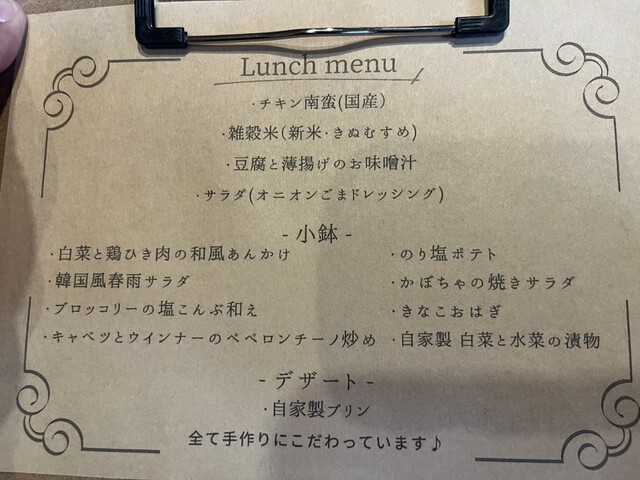 Lunch menu
・チキン南蛮(国産)
・雑穀米(新米・きぬむすめ)
・豆腐と薄揚げのお味噌汁
・サラダ(オニオンごまドレッシング)
- 小鉢 -
・白菜と鶏ひき肉の和風あんかけ
・韓国風春雨サラダ
・ブロッコリーの塩こんぶ和え
・キャベツとウインナーのペペロンチーノ炒め
・のり塩ポテト
・かぼちゃの焼きサラダ
・きなこおはぎ
・自家製 白菜と水菜の漬物
- デザート -
・自家製プリン
全て手作りにこだわっています♪